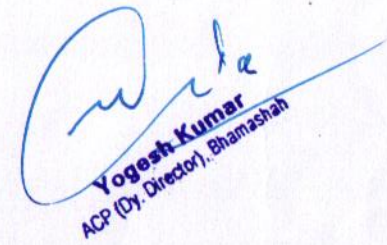 Yogesh Kumar
ACP (Dy. Director), Bhamashah